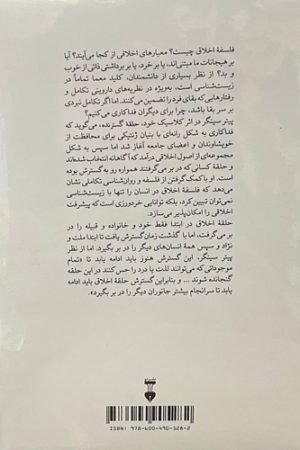 فلسفهٔ اخلاق چیست؟ معیارهای اخلاقی از کجا می‌آیند؟ آیا
بر هیجانات ما مبتنی‌اند، یا بر خرد، یا بر برداشتی ذاتی از خوب
و بد؟ از نظر بسیاری از دانشمندان، کلید معما تماماً در
زیست‌شناسی است، به‌ویژه در نظریه‌های داروینی تکامل و
رفتارهایی که بقای فرد را تضمین می‌کنند. اما اگر تکامل نبردی
بر سر بقا باشد، چرا برای دیگران فداکاری می‌کنیم؟
پیتر سینگر در اثر کلاسیک خود، حلقهٔ گسترنده، می‌گوید که
فداکاری به شکل رانه‌ای با بنیان ژنتیکی برای محافظت از
خویشاوندان و اعضای جامعه آغاز شد اما سپس به شکل
مجموعه‌ای از اصول اخلاقی درآمد که آگاهانه انتخاب شده‌اند
و حلقهٔ کسانی که در بر می‌گرفتند همواره رو به گسترش بوده
است. او با کمک گرفتن از فلسفه و روان‌شناسی تکاملی نشان
می‌دهد که فلسفهٔ اخلاق در انسان را تنها با زیست‌شناسی
نمی‌توان تبیین کرد، بلکه توانایی خردورزی است که پیشرفت
اخلاقی را امکان‌پذیر می‌سازد.
حلقهٔ اخلاق در ابتدا فقط خود و خانواده و قبیله را در
بر می‌گرفت، اما با گذشت زمان گسترش یافت تا ابتدا ملت و
نژاد و سپس همهٔ انسان‌های دیگر را در بر بگیرد. اما از نظر
پیتر سینگر، این گسترش هنوز باید ادامه یابد تا «تمام
موجوداتی که می‌توانند لذت یا درد را حس کنند در این حلقه
گنجانده شوند ... و بنابراین گسترش حلقهٔ اخلاق باید ادامه
یابد تا سرانجام بیشتر جانوران دیگر را در بر بگیرد».
ISBN: 978-600-490-528-2